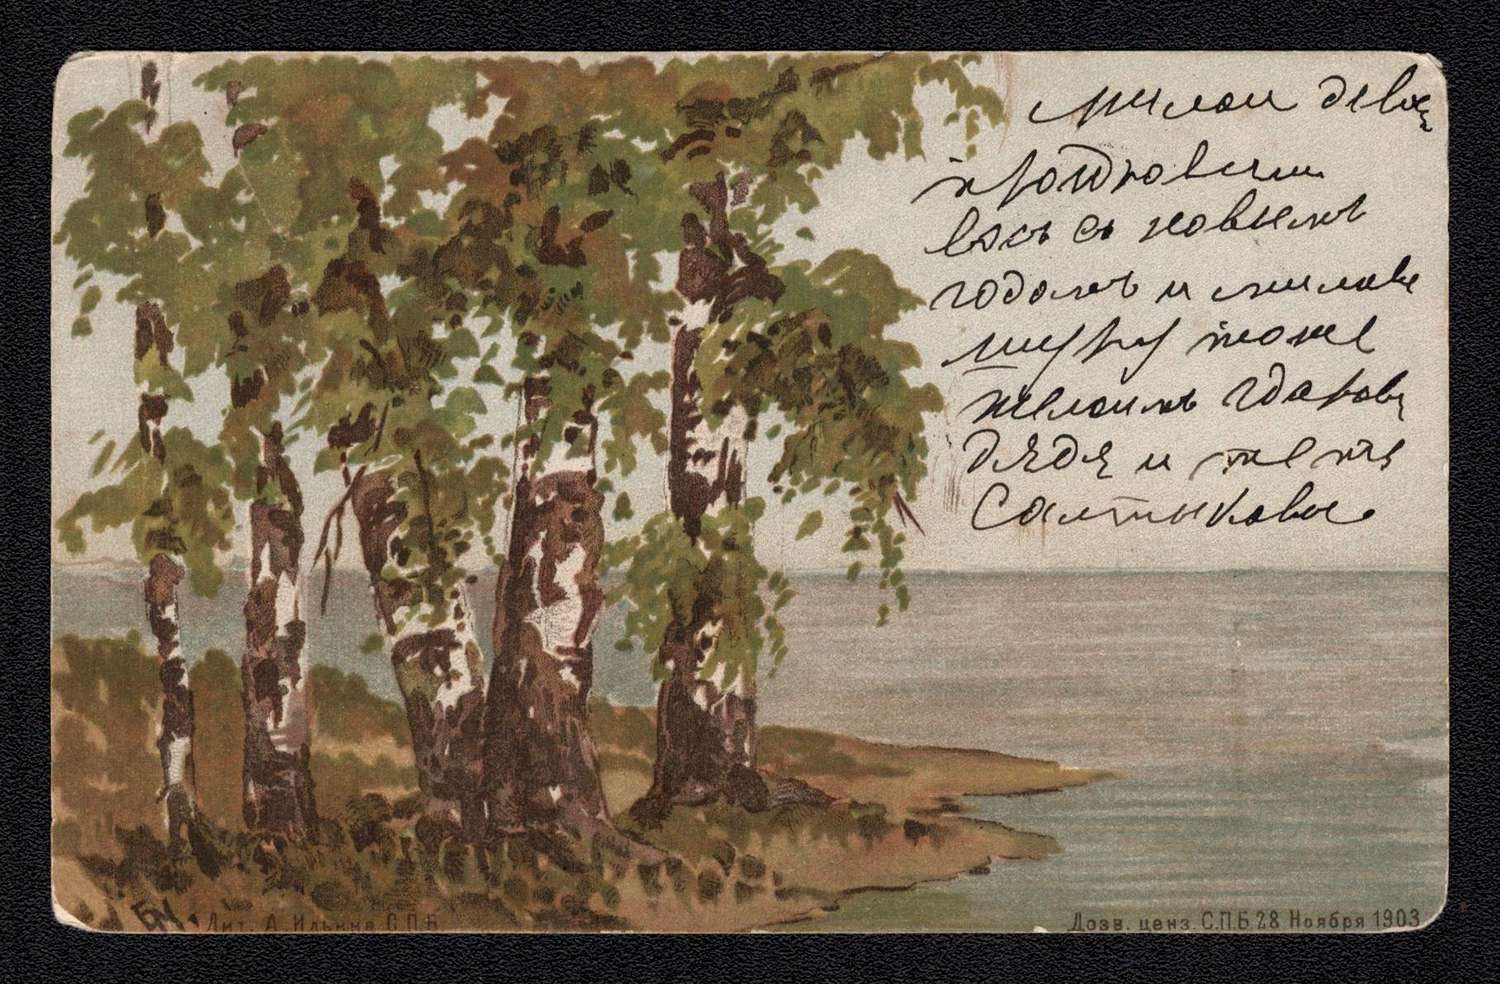 милой девоч
поздровляем
васъ съ новымъ
годомъ и милаво
шуру тоже
желаимъ здаровя
дядя и тетя
Салтыкавы
БУ.
Лит. А. Ильина С.П.Б
Дозв. ценз. С.П.Б 28 Ноября 1903